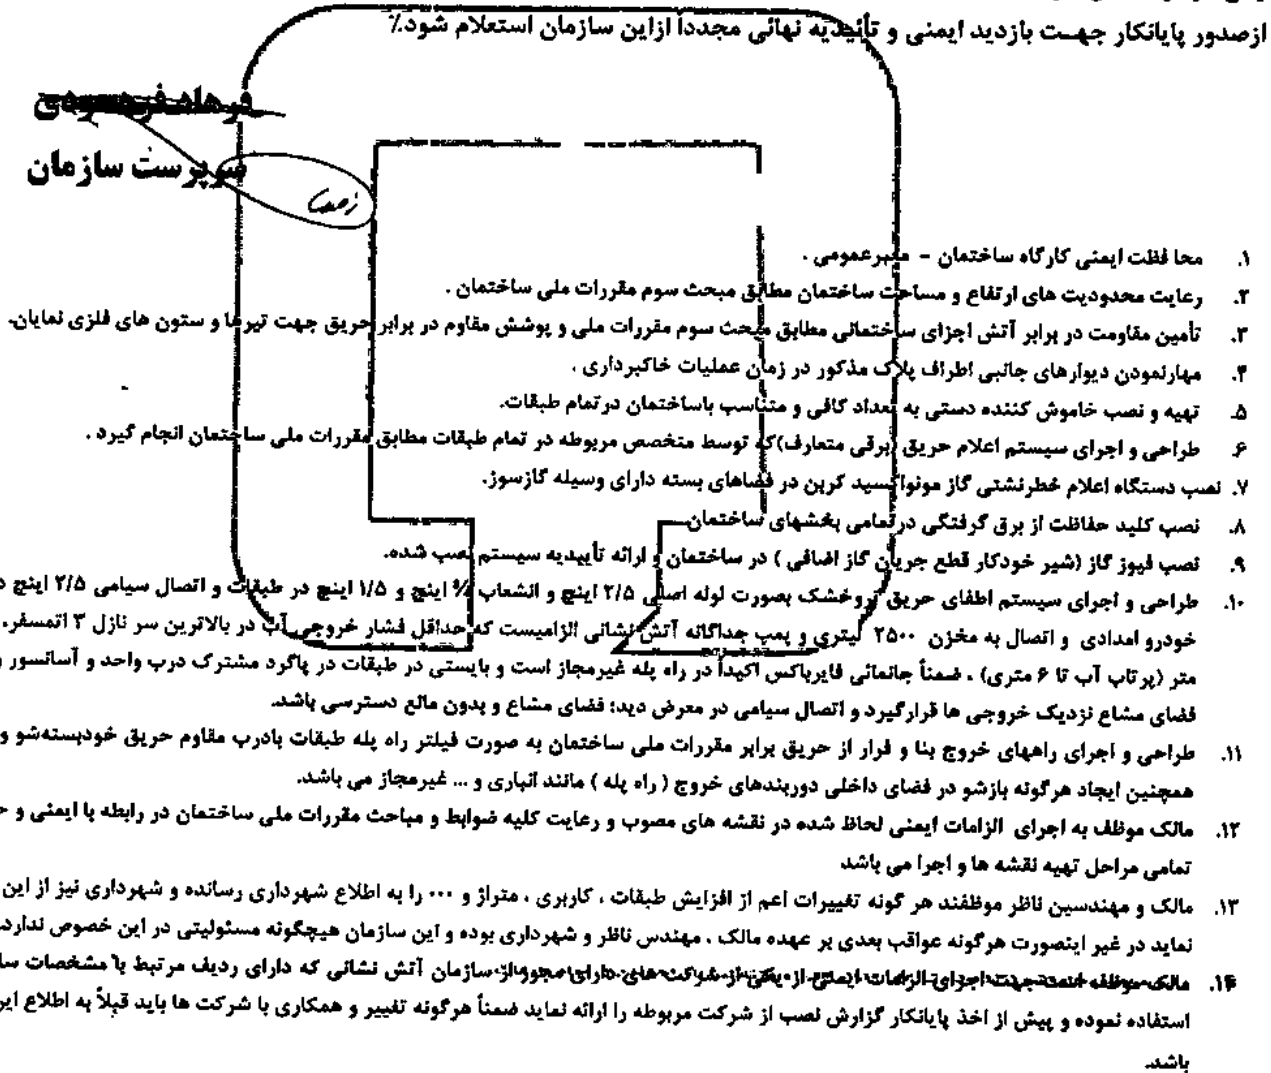 ازصدور پایانکار جهـت بازدید ایمنی و تأئیدیه نهائی مجدداً ازاین سازمان استعلام شود٪
سرپرست سازمان
۱. محا فظت ایمنی کارگاه ساختمان - معبرعمومی .
۲. رعایت محدودیت های ارتفاع و مساحت ساختمان مطابق مبحث سوم مقررات ملی ساختمان .
۳. تأمین مقاومت در برابر آتش اجزای ساختمانی مطابق مبحث سوم مقررات ملی و پوشش مقاوم در برابر حریق جهت تیرها و ستون های فلزی نمایان.
۴. مهارنمودن دیوارهای جانبی اطراف پلاک مذکور در زمان عملیات خاکبرداری .
۵. تهیه و نصب خاموش کننده دستی به تعداد کافی و متناسب باساختمان درتمام طبقات.
۶. طراحی و اجرای سیستم اعلام حریق (برقی متعارف)که توسط متخصص مربوطه در تمام طبقات مطابق مقررات ملی ساختمان انجام گیرد .
۷. نصب دستگاه اعلام خطرنشتی گاز مونواکسید کربن در فضاهای بسته دارای وسیله گازسوز.
۸. نصب کلید حفاظت از برق گرفتگی درتمامی بخشهای ساختمان
۹. نصب فیوز گاز (شیر خودکار قطع جریان گاز اضافی ) در ساختمان و ارائه تأییدیه سیستم نصب شده.
۱۰. طراحی و اجرای سیستم اطفای حریق تروخشک بصورت لوله اصلی ۲/۵ اینچ و انشعاب ¾ اینچ و ۱/۵ اینچ در طبقات و اتصال سیامی ۲/۵ اینچ
خودرو امدادی و اتصال به مخزن ۲۵۰۰ لیتری و پمپ جداگانه آتش نشانی الزامیست که حداقل فشار خروجی آب در بالاترین سر نازل ۳ اتمسفر.
متر (پرتاب آب تا ۶ متری) . ضمناً جانمائی فایرباکس اکیداً در راه پله غیرمجاز است و بایستی در طبقات در پاگرد مشترک درب واحد و آسانسور
فضای مشاع نزدیک خروجی ها قرارگیرد و اتصال سیامی در معرض دید؛ فضای مشاع و بدون مانع دسترسی باشد.
۱۱. طراحی و اجرای راههای خروج بنا و فرار از حریق برابر مقررات ملی ساختمان به صورت فیلتر راه پله طبقات بادرب مقاوم حریق خودبسته‌شو و
همچنین ایجاد هرگونه بازشو در فضای داخلی دوربندهای خروج ( راه پله ) مانند انباری و ... غیرمجاز می باشد.
۱۲. مالک موظف به اجرای الزامات ایمنی لحاظ شده در نقشه های مصوب و رعایت کلیه ضوابط و مباحث مقررات ملی ساختمان در رابطه با ایمنی و
تمامی مراحل تهیه نقشه ها و اجرا می باشد
۱۳. مالک و مهندسین ناظر موظفند هر گونه تغییرات اعم از افزایش طبقات ، کاربری ، متراژ و ... را به اطلاع شهرداری رسانده و شهرداری نیز از این
نماید در غیر اینصورت هرگونه عواقب بعدی بر عهده مالک ، مهندس ناظر و شهرداری بوده و این سازمان هیچگونه مسئولیتی در این خصوص ندارد.
۱۴. مالک موظف است جهت اجرای الزامات ایمنی از یکی از شرکت های دارای مجوز از سازمان آتش نشانی که دارای ردیف مرتبط با مشخصات
استفاده نموده و پیش از اخذ پایانکار گزارش نصب از شرکت مربوطه را ارائه نماید ضمناً هرگونه تغییر و همکاری با شرکت ها باید قبلاً به اطلاع
باشد.